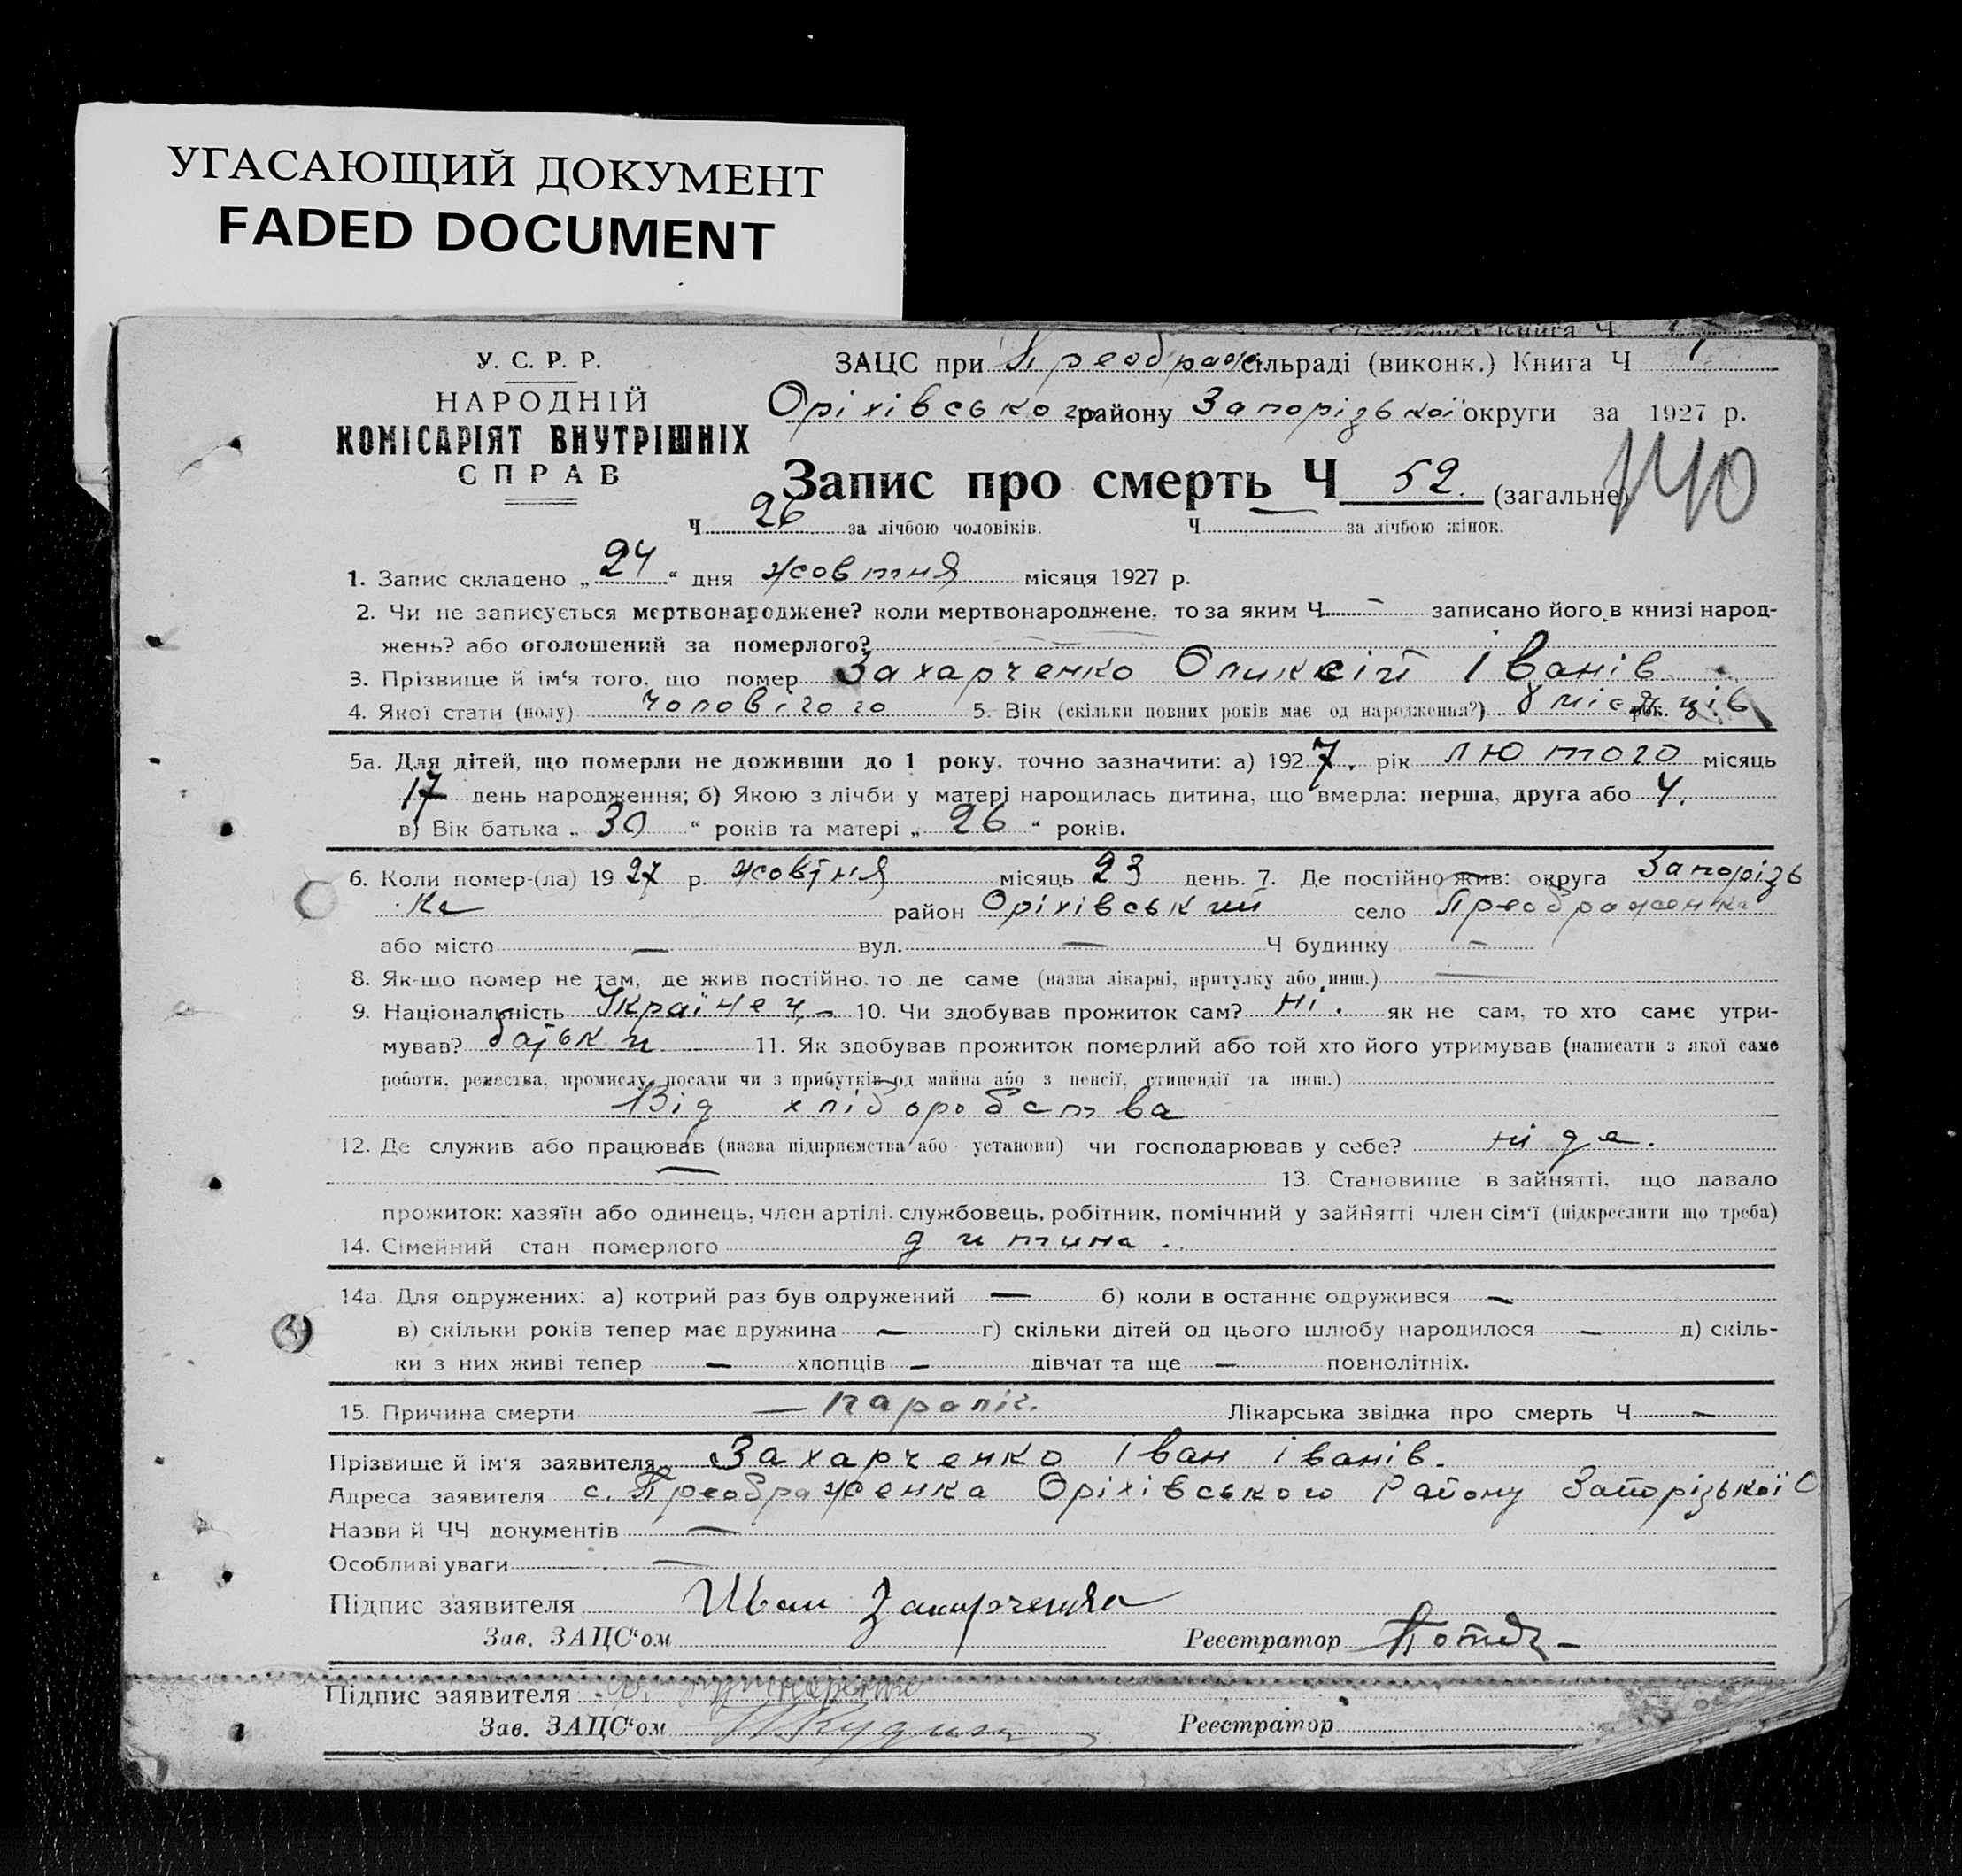 УГАСАЮЩИЙ ДОКУМЕНТ
FADED DOCUMENT
книга Ч
У. С. Р. Р.
НАРОДНІЙ
КОМІСАРІЯТ ВНУТРІШНІХ
СПРАВ
ЗАЦС при Преображ сільраді (виконк.) Книга Ч 1
Оріхівського району Запорізької округи за 1927 р.
Запис про смерть Ч 52. (загальне)
140
Ч 26 за лічбою чоловіків. Ч — за лічбою жінок.
1. Запис складено „24“ дня жовтня місяця 1927 р.
2. Чи не записується мертвонароджене? коли мертвонароджене, то за яким Ч — записано його в книзі народ-
жень? або оголошений за померлого? —
3. Прізвище й ім'я того, що помер Захарченко Оликсій Іванів
4. Якої стати (полу) чоловічого 5. Вік (скільки повних років має од народження?) 8 місяців рок.
5а. Для дітей, що померли не доживши до 1 року, точно зазначити: а) 1927. рік лютого місяць
17 день народження; б) Якою з лічби у матері народилась дитина, що вмерла: перша, друга або 4.
в) Вік батька „30“ років та матері „26“ років.
6. Коли помер-(ла) 1927 р. жовтня місяць 23 день. 7. Де постійно жив: округа Запорізь
ка район Оріхівський село Преображенка
або місто — вул. — Ч будинку —
8. Як-що помер не там, де жив постійно, то де саме (назва лікарні, притулку або инш.) —
9. Національність Українец 10. Чи здобував прожиток сам? ні. як не сам, то хто саме утри-
мував? батьки 11. Як здобував прожиток померлий або той хто його утримував (написати з якої саме
роботи, ремества, промислу, посади чи з прибутків од майна або з пенсії, стипендії та инш.)
Від хліборобства
12. Де служив або працював (назва підприємства або установи) чи господарював у себе? ніде.
— 13. Становище в зайнятті, що давало
прожиток: хазяїн або одинець, член артілі, службовець, робітник, помічний у зайнятті член сім'ї (підкреслити що треба)
14. Сімейний стан померлого дитина.
14а. Для одружених: а) котрий раз був одружений — б) коли в останнє одружився —
в) скільки років тепер має дружина — г) скільки дітей од цього шлюбу народилося — д) скіль-
ки з них живі тепер — хлопців — дівчат та ще — повнолітніх.
15. Причина смерти — параліч. Лікарська звідка про смерть Ч —
Прізвище й ім'я заявителя Захарченко Іван Іванів.
Адреса заявителя с. Преображенка Оріхівського Району Запорізької О
Назви й ЧЧ документів —
Особливі уваги —
Підпис заявителя Иван Захарченко
Зав. ЗАЦС'ом Реєстратор
Підпис заявителя
Зав. ЗАЦС'ом Реєстратор